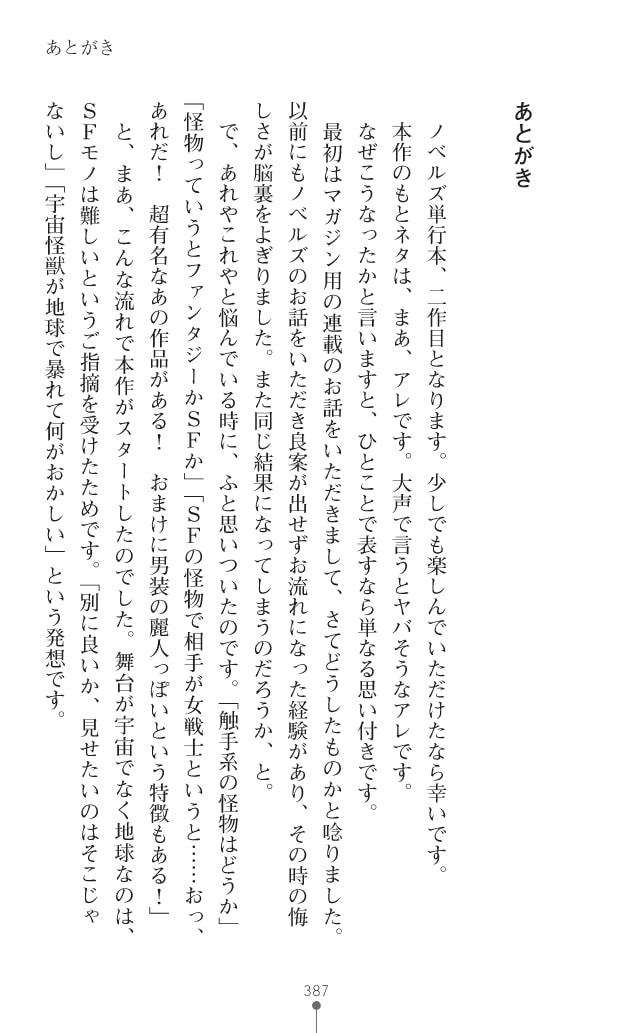 あとがき
あとがき
ノベルズ単行本、二作目となります。少しでも楽しんでいただけたなら幸いです。
本作のもとネタは、まあ、アレです。大声で言うとヤバそうなアレです。
なぜこうなったかと言いますと、ひとことで表すなら単なる思い付きです。
最初はマガジン用の連載のお話をいただきまして、さてどうしたものかと唸りました。
以前にもノベルズのお話をいただき良案が出せずお流れになった経験があり、その時の悔
しさが脳裏をよぎりました。また同じ結果になってしまうのだろうか、と。
で、あれやこれやと悩んでいる時に、ふと思いついたのです。「触手系の怪物はどうか」
「怪物っていうとファンタジーかＳＦか」「ＳＦの怪物で相手が女戦士というと……おっ、
あれだ！　超有名なあの作品がある！　おまけに男装の麗人っぽいという特徴もある！」
と、まあ、こんな流れで本作がスタートしたのでした。舞台が宇宙でなく地球なのは、
ＳＦモノは難しいというご指摘を受けたためです。「別に良いか、見せたいのはそこじゃ
ないし」「宇宙怪獣が地球で暴れて何がおかしい」という発想です。
387